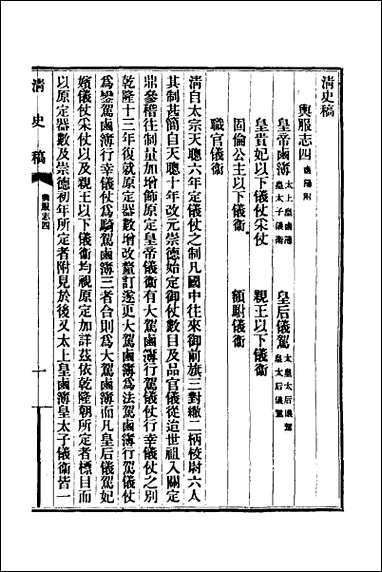 清史稿
輿服志四 鹵簿附
皇帝鹵簿 太上皇鹵簿 皇太子儀衛 皇后儀駕 太皇太后儀駕 皇太后儀駕
皇貴妃以下儀仗采仗 親王以下儀衛
固倫公主以下儀衛 額駙儀衛
職官儀衛
清自太宗天聰六年定儀仗之制凡國中往來御前旗三對繖二柄校尉六人
其制甚簡自天聰十年改元崇德始定御仗數目及品官儀從迨世祖入關定
鼎參稽往制量加增飾原定皇帝儀衛有大駕鹵簿行駕儀仗行幸儀仗之別
乾隆十三年復就原定器數增改釐訂遂更大駕鹵簿爲法駕鹵簿行駕儀仗
爲鑾駕鹵簿行幸儀仗爲騎駕鹵簿三者合則爲大駕鹵簿而凡皇后儀駕妃
嬪儀仗采仗以及親王以下儀衛均視原定加詳茲依乾隆朝所定者標目而
以原定器數及崇德初年所定者附見於後又太上皇鹵簿皇太子儀衛皆一
清史稿
輿服志四
一